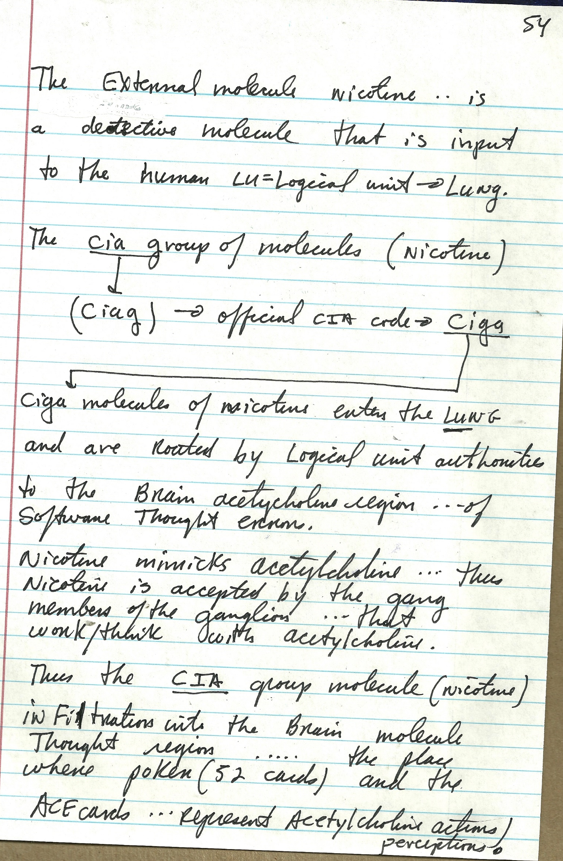 54
The External molecule nicotine .. is
a detective molecule that is input
to the human LU=Logical unit → Lung.
The cia group of molecules (Nicotine)
(Ciag) → official CIA code → Ciga
Ciga molecules of nicotine enter the LUNG
and are Routed by Logical unit authorities
to the Brain acetycholine region ... of
Software Thought errors.
Nicotine mimicks acetylcholine ... thus
Nicotine is accepted by the gang
members of the ganglion ... that
work/think with acetylcholine.
Thus the CIA group molecule (nicotine)
infiltrations into the Brain molecule
Thought region ..... the place
where poker (52 cards) and the
ACE cards ... represent Acetylcholine actions/
perceptions.